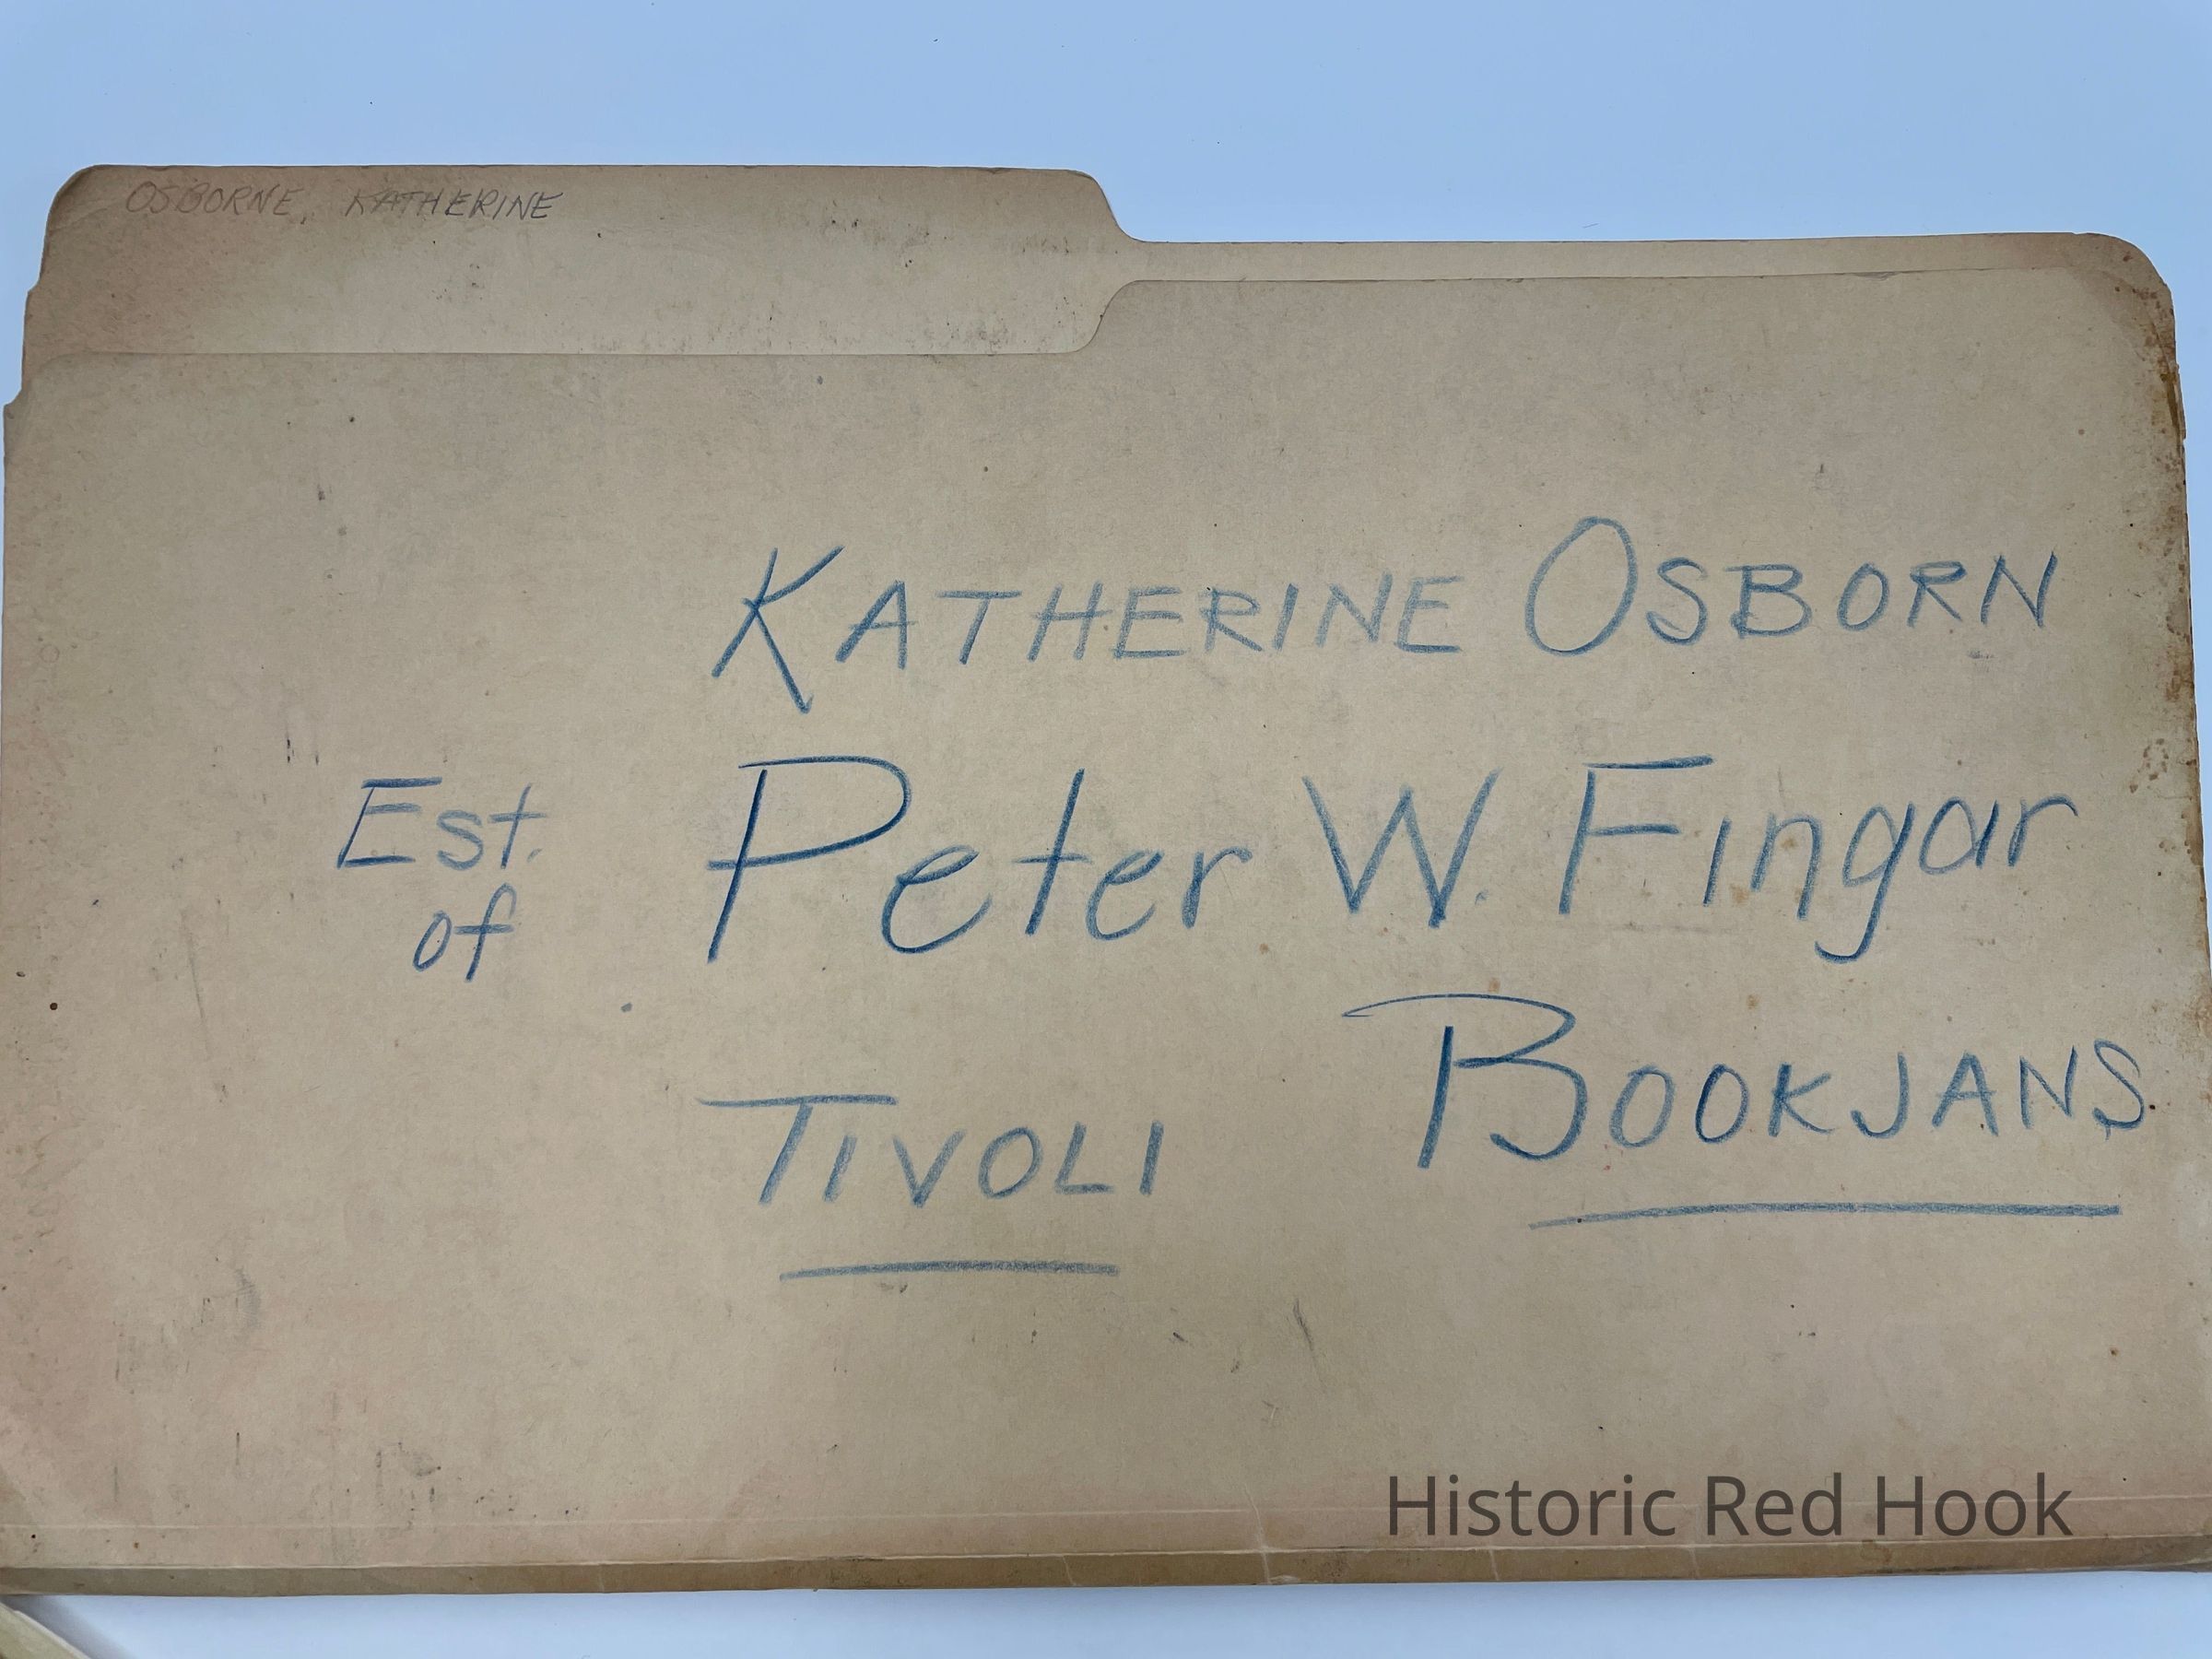 OSBORNE, KATHERINE
KATHERINE OSBORN
Est. of Peter W. Fingar
TIVOLI BOOKJANS
Historic Red Hook